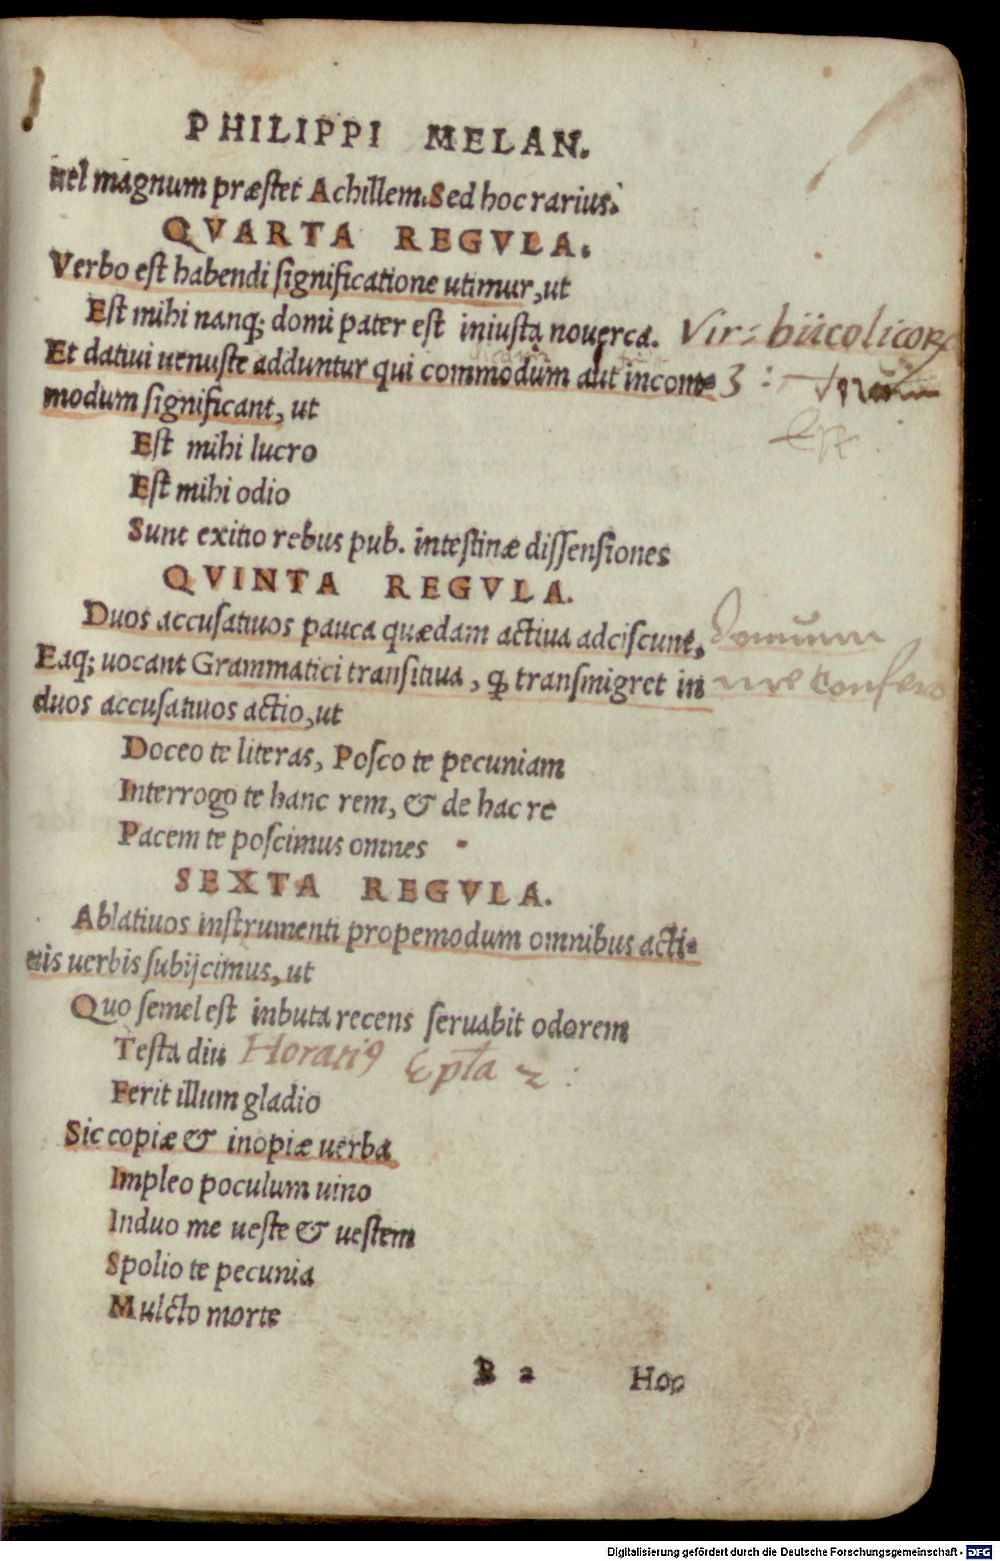 PHILIPPI MELAN.
uel magnum præstet Achillem. Sed hoc rarius.
QVARTA REGVLA.
Verbo est habendi significatione utimur, ut
Est mihi nanq; domi pater est iniusta nouerca. Vir: bücolicorꝝ
Et datiui uenuste adduntur qui commodum aut incom= 3 :
modum significant, ut
Est mihi lucro
Est mihi odio
Sunt exitio rebus pub. intestinæ dissensiones
QVINTA REGVLA.
Duos accusatiuos pauca quædam actiua adciscunt, Domum
Eaq; uocant Grammatici transitiua, ꝙ transmigret in me confero
duos accusatiuos actio, ut
Doceo te literas, Posco te pecuniam
Interrogo te hanc rem, & de hac re
Pacem te poscimus omnes
SEXTA REGVLA.
Ablatiuos instrumenti propemodum omnibus acti=
uis uerbis subijcimus, ut
Quo semel est inbuta recens seruabit odorem
Testa diu Horatiꝯ Epła 2 :
Ferit illum gladio
Sic copiæ & inopiæ uerba
Impleo poculum uino
Induo me ueste & uestem
Spolio te pecunia
Mulcto morte
B 2 Hoc
Digitalisierung gefördert durch die Deutsche Forschungsgemeinschaft - DFG